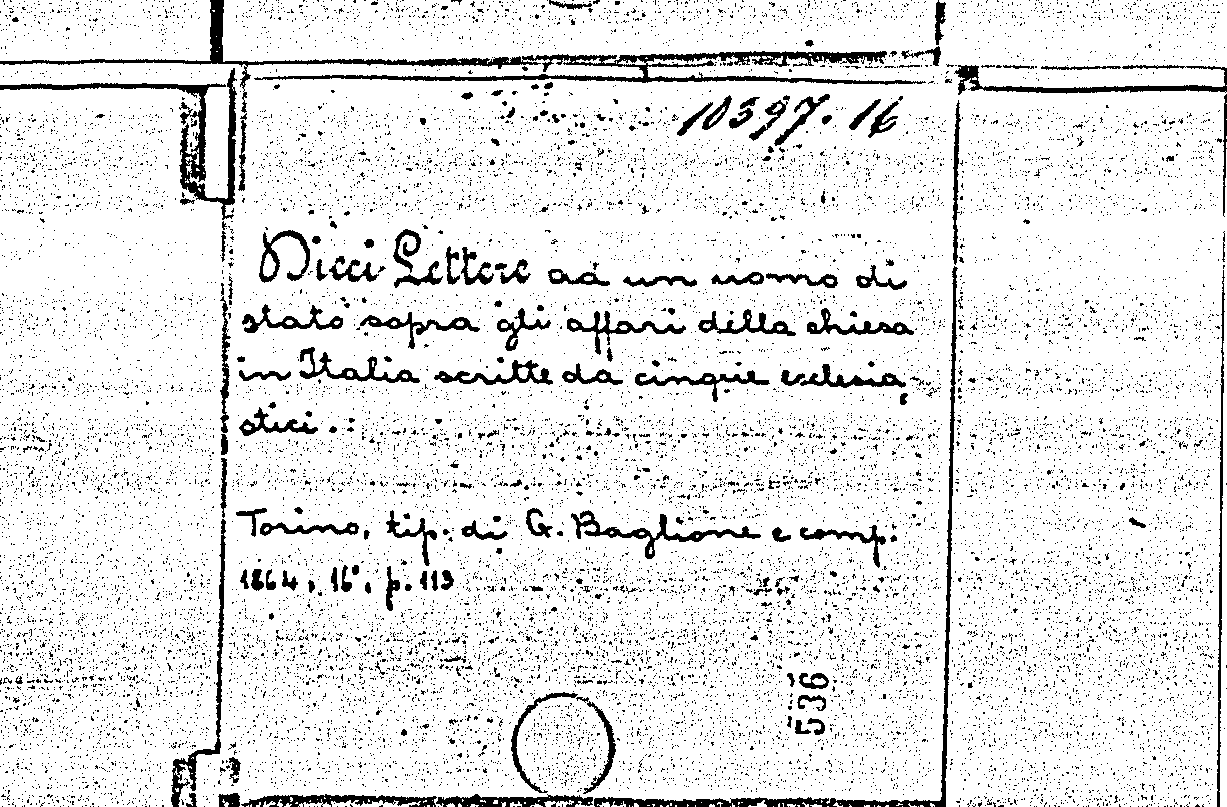 10397.16
Dieci Lettere ad un uomo di
stato sopra gli affari della chiesa
in Italia scritte da cinque ecclesia,
stici..
Torino, tip. di G. Baglione e comp.
1864, 16°, p. 113
536